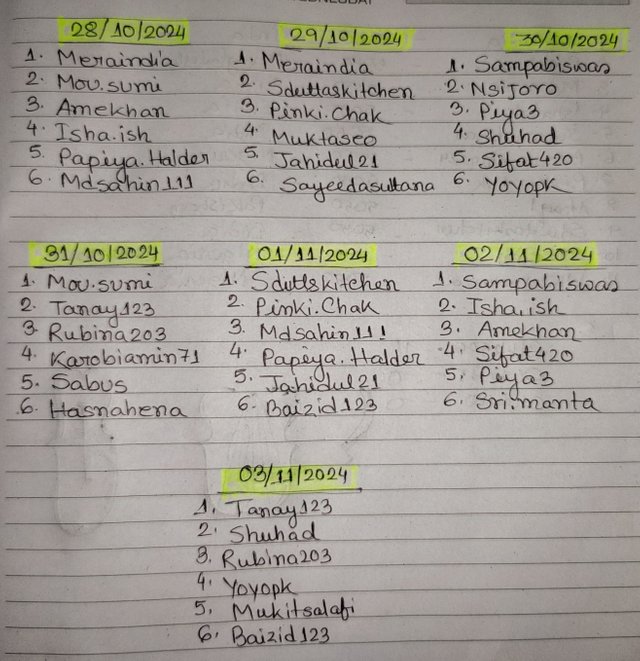 28/10/2024
1. Meraindia
2. Mou.sumi
3. Amekhan
4. Isha.ish
5. Papiya.Halder
6. Mdsahin111
29/10/2024
1. Meraindia
2. Sduttaskitchen
3. Pinki.Chak
4. Muktaseo
5. Jahidul21
6. Sayeedasultana
30/10/2024
1. Sampabiswas
2. Nsijoro
3. Piya3
4. Shuhad
5. Sifat420
6. YoyopK
31/10/2024
1. Mou.sumi
2. Tanay123
3. Rubina203
4. Karobiamin71
5. Sabus
6. Hasnahena
01/11/2024
1. Sduttskitchen
2. Pinki.Chak
3. Mdsahin111
4. Papiya.Halder
5. Jahidul21
6. Baizid123
02/11/2024
1. Sampabiswas
2. Isha.ish
3. Amekhan
4. Sifat420
5. Piya3
6. Sri.manta
03/11/2024
1. Tanay123
2. Shuhad
3. Rubina203
4. Yoyopk
5. Mukitsalafi
6. Baizid123